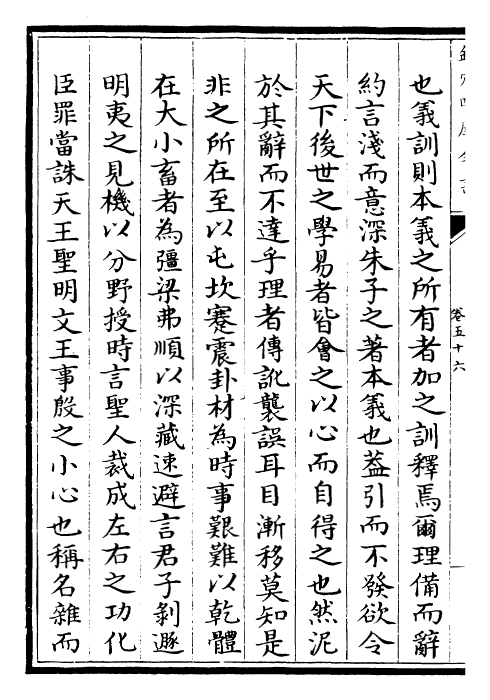 欽定四庫全書
卷五十六
也義訓則本義之所有者加之訓釋焉爾理備而辭
約言淺而意深朱子之著本義也葢引而不發欲令
天下後世之學易者皆會之以心而自得之也然泥
於其辭而不達乎理者傳訛襲誤耳目漸移莫知是
非之所在至以屯坎蹇震卦材為時事艱難以乾體
在大小畜者為彊梁弗順以深藏速避言君子剝遯
明夷之見機以分野授時言聖人裁成左右之功化
臣罪當誅天王聖明文王事殷之小心也稱名雜而